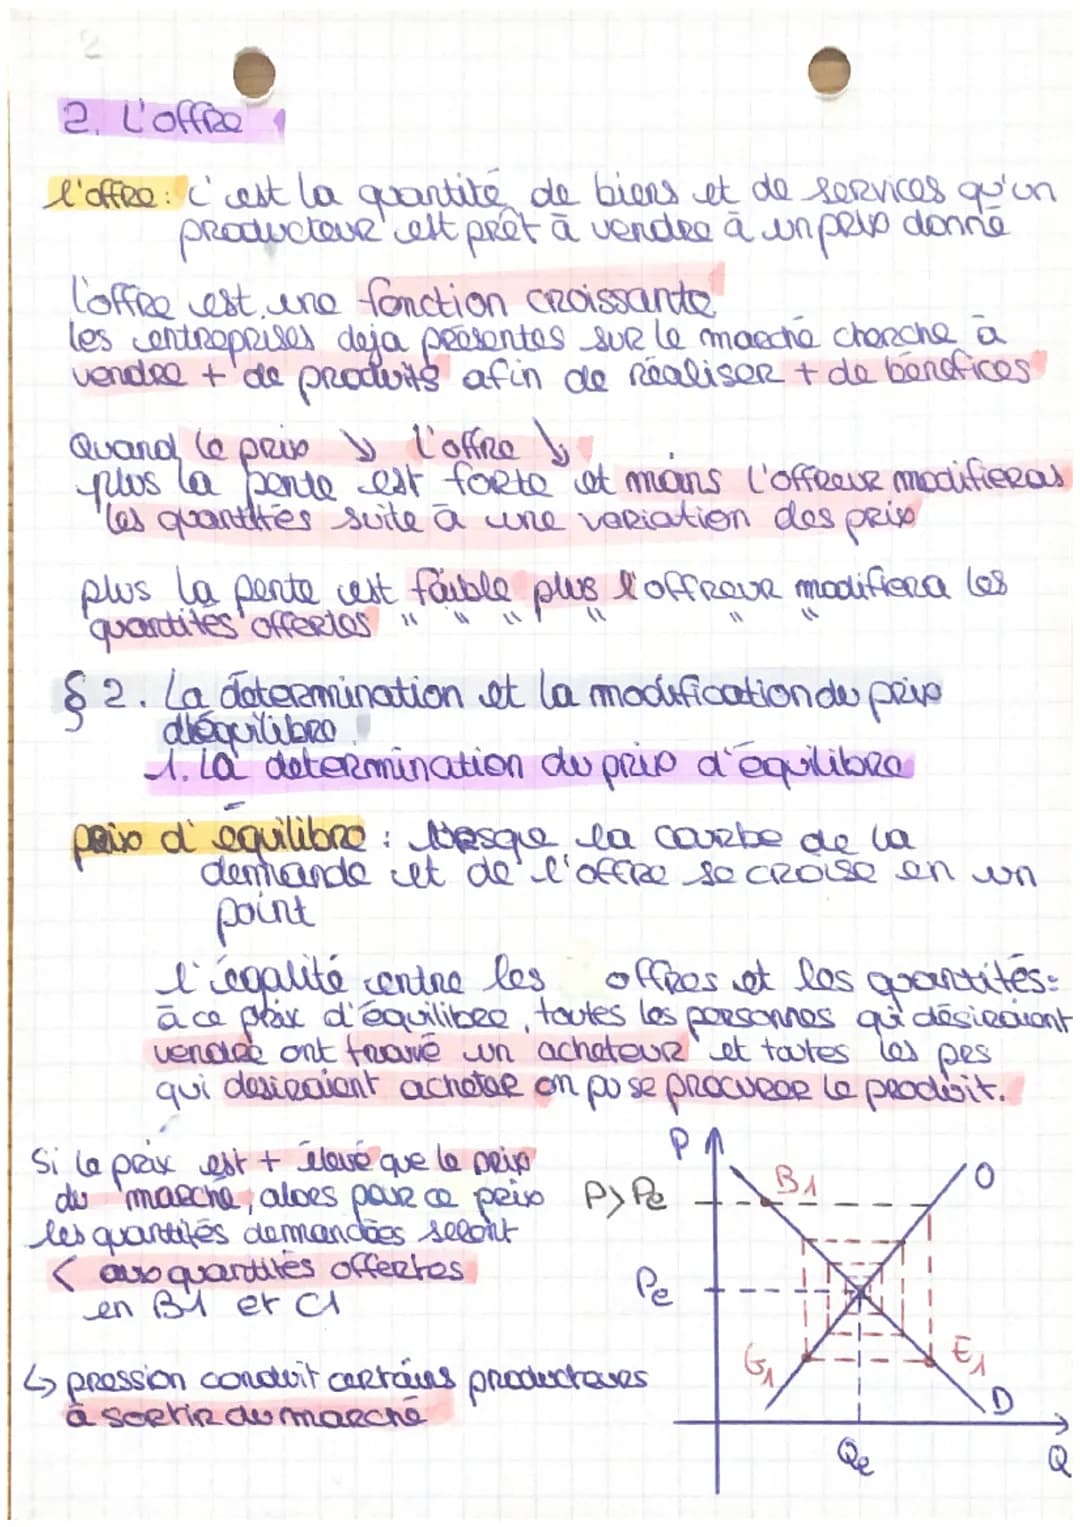 2. L'offre
l'offre: c'est la quantité de biens et de services qu'un
producteur est prêt à vendre à un prix donné
l'offre est une fonction croissante
les entreprises deja présentes sur le marché cherche à
vendre + de produits afin de réaliser + de bénéfices
Quand le prix ↘ l'offre ↘
plus la pente est forte et moins l'offreur modifieras
les quantités suite à une variation des prix
plus la pente est faible plus l'offreur modifiera les
quantités offertes " " " " " "
§ 2. La détermination et la modification du prix
d'équilibre
1. La détermination du prix d'équilibre
prix d'équilibre : lorsque la courbe de la
demande et de l'offre se croise en un
point
l'égalité entre les offres et les quantités:
à ce prix d'équilibre, toutes les personnes qui désiraient
vendre ont trouvé un acheteur et toutes les pes
qui desiraient acheter on pu se procurer le produit.
Si le prix est + élevé que le prix
du marché, alors pour ce prix
les quantités demandées seront
< aux quantités offertes
en B1 et C1
↳ pression conduit certains producteurs
à sortir du marché
P
B1
O
P > Pe
Pe
G1
E1
D
Qe
Q